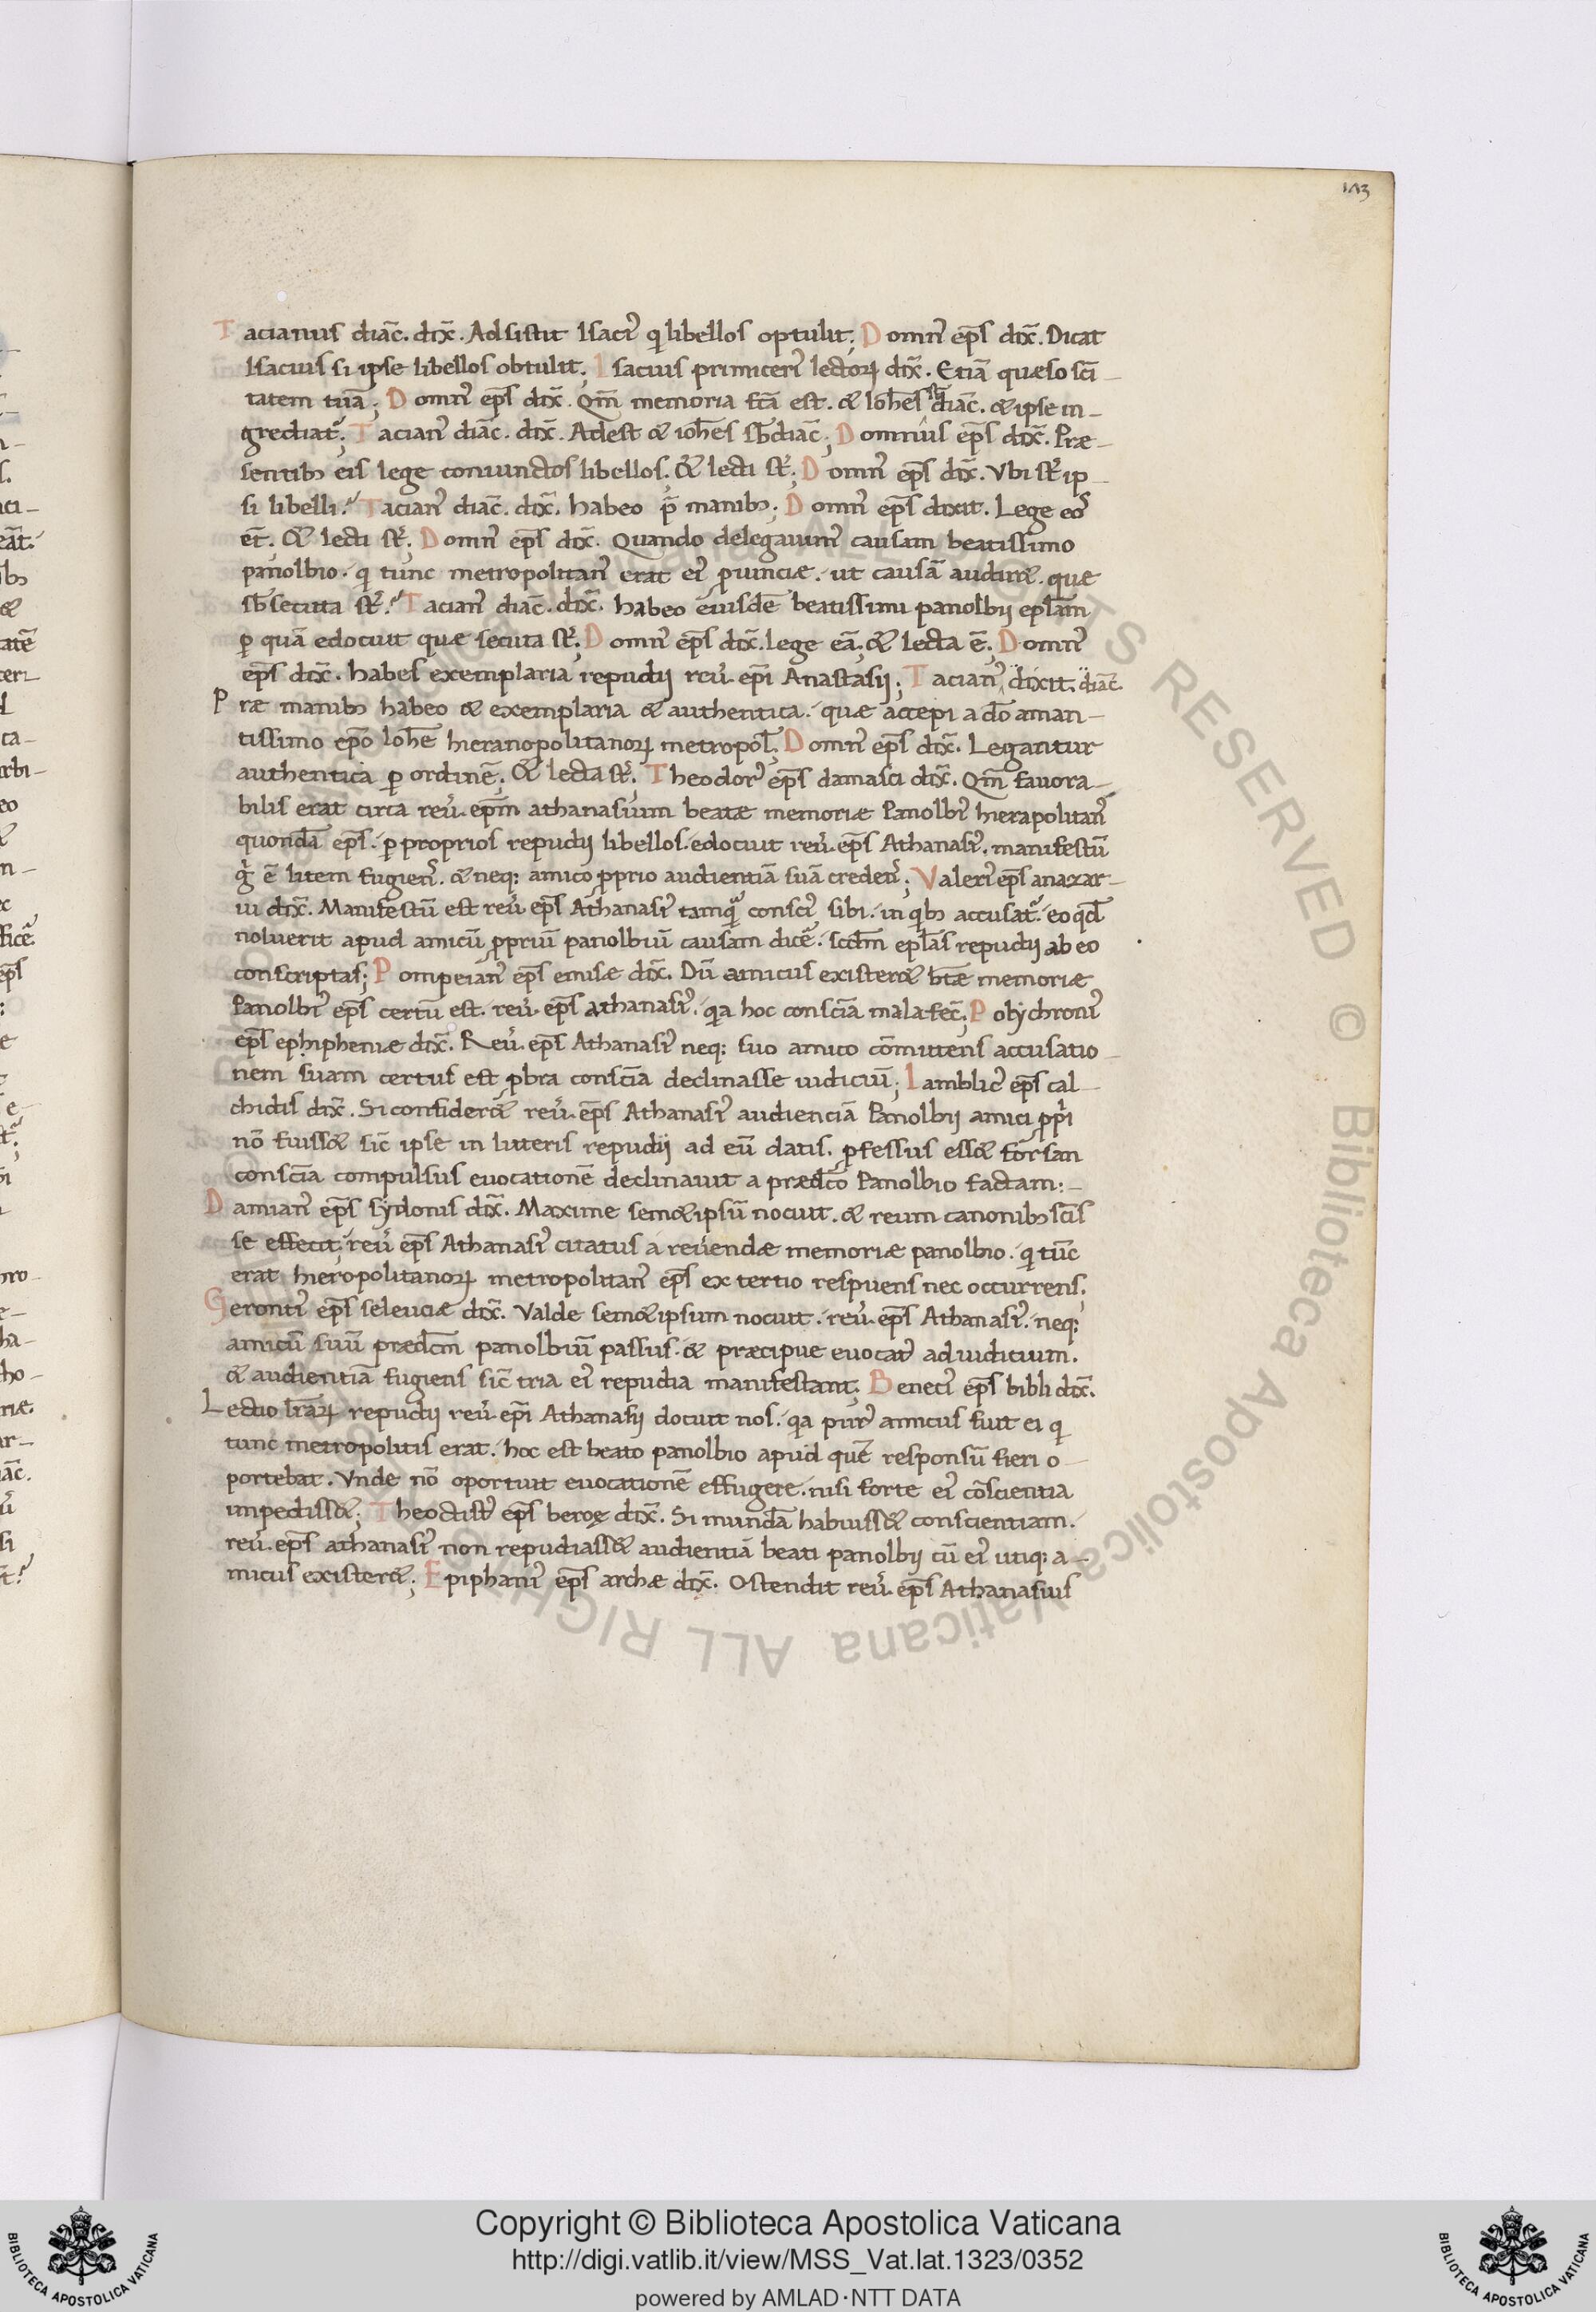 173
Tacianus diac̄. dix̄. Adsistit Isaci᾽ q libellos optulit; Domn᾽ ep̄s dix̄. Dicat
Isacius si ipse libellos obtulit; Isacius primiceri᾽ lectoꝝ dix̄. Etiā quæso sc̄i-
tatem tuā; Domn᾽ ep̄s dix̄. Qm̄ memoria fc̄a est. & Ioh̄es diac̄. & ipse in-
grediat᾽; Tacian᾽ diac̄. dix̄. Adest & ioh̄es sb̄diac̄; Domnus ep̄s dix̄. Præ-
sentib; eis lege coniunctos libellos. & lecti st̄; Domn᾽ ep̄s dix̄. Vbi st̄ ip-
si libelli? Tacian᾽ diac̄. dix̄. habeo p̄ manib; Domn᾽ ep̄s dixit. Lege eos
et̄. & lecti st̄; Domn᾽ ep̄s dix̄. Quando delegauim᾽ causam beatissimo
panolbio. q tunc metropolitan᾽ erat ei᾽ ꝓuinciæ. ut causā audir&. quæ
sb̄secuta st̄? Tacian᾽ diac̄. dix̄. habeo eiusdē beatissimi panolbij epl̄am
ꝑ quā edocuit quæ secuta st̄; Domn᾽ ep̄s dix̄. lege eā; & lecta ē; Domn᾽
ep̄s dix̄. habes exemplaria repudij reu᾽. ep̄i Anastasij; Tacian᾽ dixit. diac̄.
Præ manib; habeo & exemplaria & authentica. quæ accepi a dō aman-
tissimo ep̄o Ioh̄e hieranopolitanoꝝ metropol̄; Domn᾽ ep̄s dix̄. Legantur
authentica ꝑ ordinē; & lecta st̄; Theodor᾽ ep̄s damasci dix̄. Qm̄ fauora-
bilis erat circa reu᾽. ep̄m athanasium beatæ memoriæ Panolbi᾽ hierapolitan᾽
quondā ep̄s. ꝑ proprios repudij libellos. edocuit reu᾽. ep̄s Athanasi᾽. manifestū
g᾽ ē litem fugiens. & neq; amico ꝓprio audientiā suā credens; Valeri᾽ ep̄s anazar-
ui dix̄. Manifestū est reu᾽ ep̄s Athanasi᾽ tamquā consci᾽ sibi. in qb; accusat᾽. eo qd̄
noluerit apud amicū ꝓpriū panolbiū causam dicē. scd̄m epl̄as repudij ab eo
conscriptas; Pompeian᾽ ep̄s emisæ dix̄. Dū amicus exister& bt̄æ memoriæ
Panolbi᾽ ep̄s certū est. reu᾽. ep̄s athanasi᾽. qa hoc consc̄ia mala fec̄; Polychroni᾽
ep̄s ephipheniæ dix̄. Reu᾽. ep̄s Athanasi᾽ neq; suo amico cōmittens accusatio-
nem suam certus est ꝓbra consc̄ia declinasse iudiciū; Iamblic᾽ ep̄s cal-
chidis dix̄. Si confider& reu᾽. ep̄s Athanasi᾽ audienciā Panolbij amici ꝓpri
nō fuiss& sic̄ ipse in litteris repudij ad eū datis. ꝓfessus ess& forsan
consc̄ia compulsus euocationē declinauit a prædc̄o Panolbio factam:-
Damian᾽ ep̄s sydonis dix̄. Maxime sem&ipsū nocuit. & reum canonib; sc̄is
se effecit; reu᾽ ep̄s Athanasi᾽ citatus a reuendæ memoriæ panolbio. q tūc
erat hieropolitanoꝝ metropolitan᾽ ep̄s ex tertio respuens nec occurrens.
Geronti᾽ ep̄s seleuciæ dix̄. Valde sem&ipsum nocuit. reu᾽. ep̄s Athanasi᾽. neq;
amicū suū prædc̄m panolbiū passus. & præcipue euocat᾽ ad iudicium.
& audientiā fugiens sic̄ tria ei᾽ repudia manifestant; Benec᾽ ep̄s bibli dix̄.
Lectio lr̄aꝝ repudij reu᾽ ep̄i Athanasij docuit nos. qa pur᾽ amicus fuit ei q
tunc metropolitis erat. hoc est beato panolbio apud quē responsū fieri o-
portebat. Vnde nō oportuit euocationē effugere. nisi forte ei᾽ cōscientia
impediss&; Theoctist᾽ ep̄s beroę dix̄. Si mundā habuiss& conscientiam.
reu᾽. ep̄s athanasi᾽ non repudiass& audientiā beati panolbij cū ei᾽ utiq; a-
micus exister&; Epiphani᾽ ep̄s archæ dix̄. Ostendit reu᾽. ep̄s Athanasius
ALL RIGHTS RESERVED © Biblioteca Apostolica Vaticana
Copyright © Biblioteca Apostolica Vaticana
http://digi.vatlib.it/view/MSS_Vat.lat.1323/0352
powered by AMLAD·NTT DATA
BIBLIOTECA APOSTOLICA VATICANA
BIBLIOTECA APOSTOLICA VATICANA